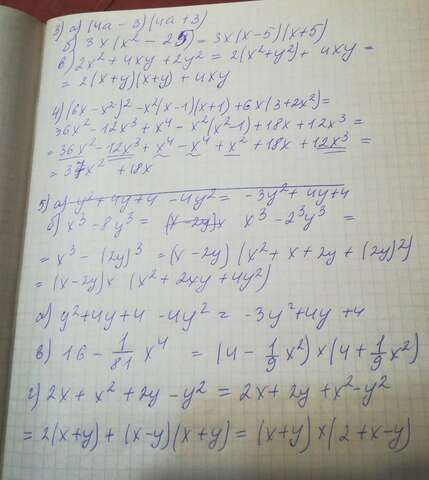 3) а) (4a - 3)(4a + 3)
б) 3x(x² - 25) = 3x(x-5)(x+5)
в) 2x² + 4xy + 2y² = 2(x²+y²) + 4xy =
= 2(x+y)(x+y) + 4xy
4) (6x-x²)² - x²(x-1)(x+1) + 6x(3+2x²) =
36x² - 12x³ + x⁴ - x²(x²-1) + 18x + 12x³ =
= 36x² - 12x³ + x⁴ - x⁴ + x² + 18x + 12x³ =
= 37x² + 18x
5) а) y²+4y+4 - 4y² = -3y²+4y+4
б) x³ - 8y³ = (x-2y)x x³ - 2³y³ =
= x³ - (2y)³ = (x-2y)(x² + x + 2y + (2y)²)
= (x-2y)x (x² + 2xy + 4y²)
а) y²+4y+4 - 4y² = -3y²+4y+4
в) 16 - 1/81 x⁴ = (4 - 1/9 x²) x (4 + 1/9 x²)
г) 2x + x² + 2y - y² = 2x + 2y + x² - y²
= 2(x+y) + (x-y)(x+y) = (x+y) x (2+x-y)